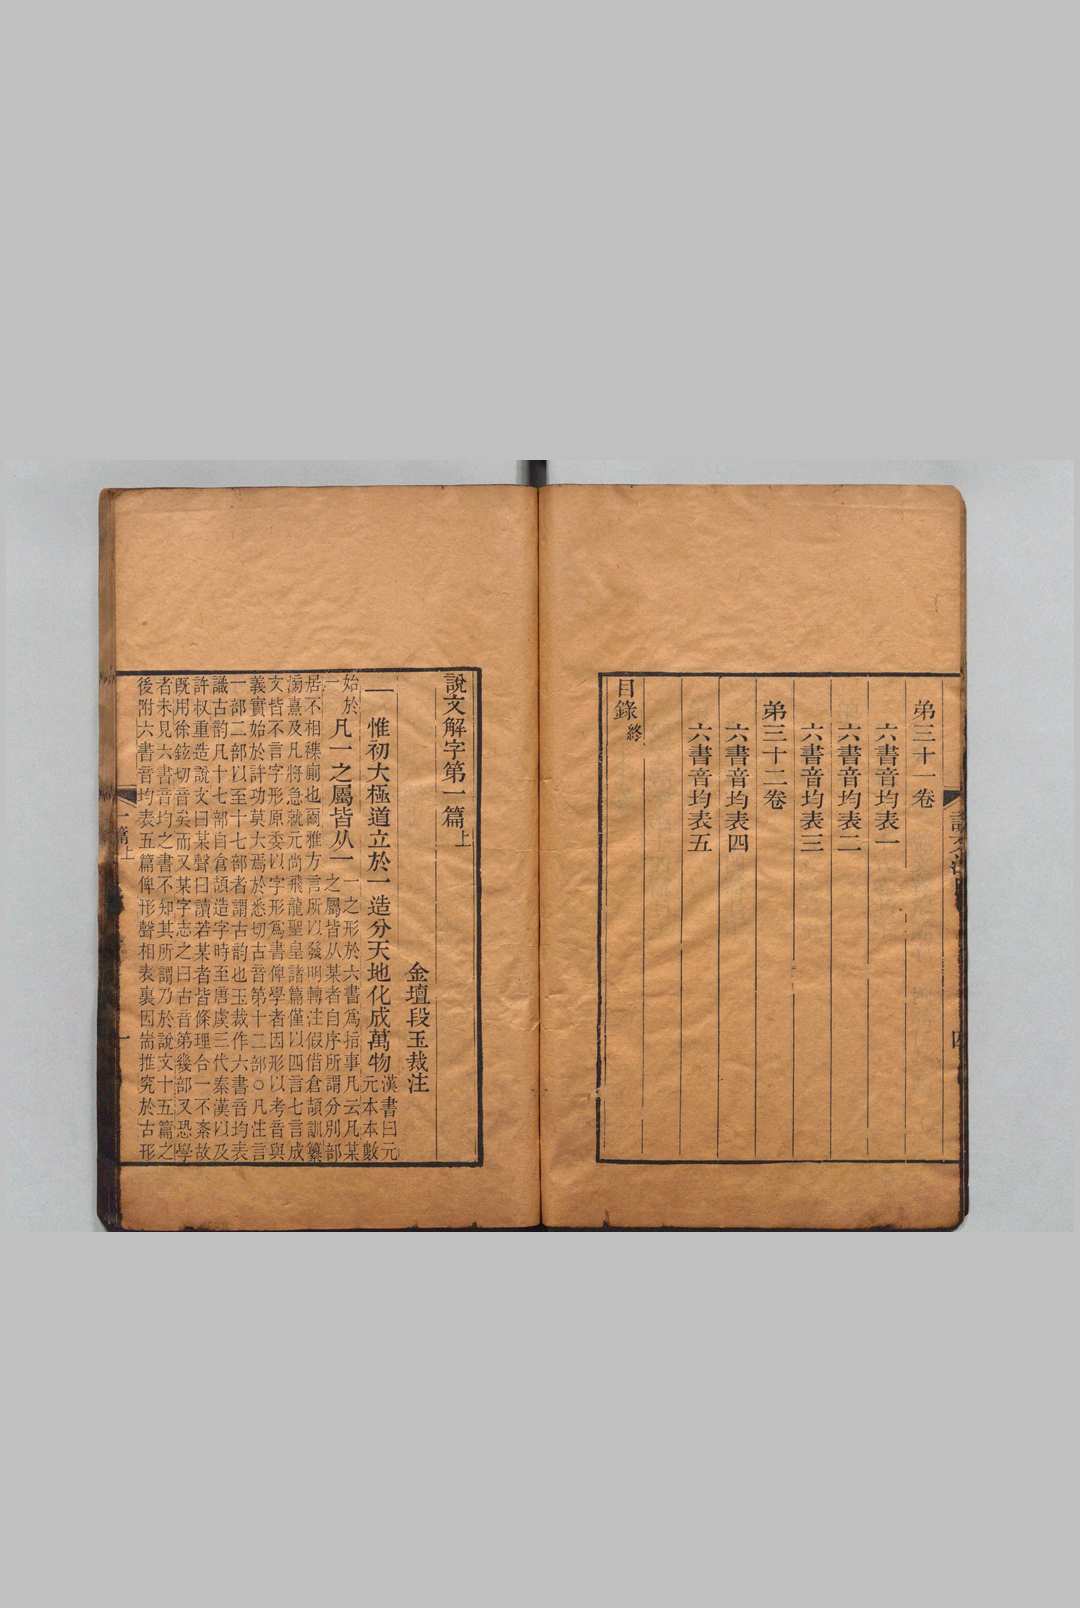 弟三十一卷
六書音均表一
六書音均表二
六書音均表三
弟三十二卷
六書音均表四
六書音均表五
目錄終
說文解字第一篇上
金壇段玉裁注
一 惟初大極道立於一造分天地化成萬物
漢書曰元
元本本數
始於
一
凡一之屬皆从一
一之形於六書爲指事凡云凡某
之屬皆从某者自序所謂分別部
居不相襍廁也爾雅方言所以發明轉注假借倉頡訓纂
滂熹及凡將急就元尚飛龍聖皇諸篇僅以四言七言成
文皆不言字形原委以字形爲書俾學者因形以考音與
義實始於許功莫大焉於悉切古音第十二部○凡注言
一部二部以至十七部者謂古韵也玉裁作六書音均表
識古韵凡十七部自倉頡造字時至唐虞三代秦漢以及
許叔重造說文曰某聲曰讀若某者皆條理合一不紊故
既用徐鉉切音矣而又某字志之曰古音第幾部又恐學
者未見六書音均之書不知其所謂乃於說文十五篇之
後附六書音均表五篇俾形聲相表裏因耑推究於古形
一篇上
一